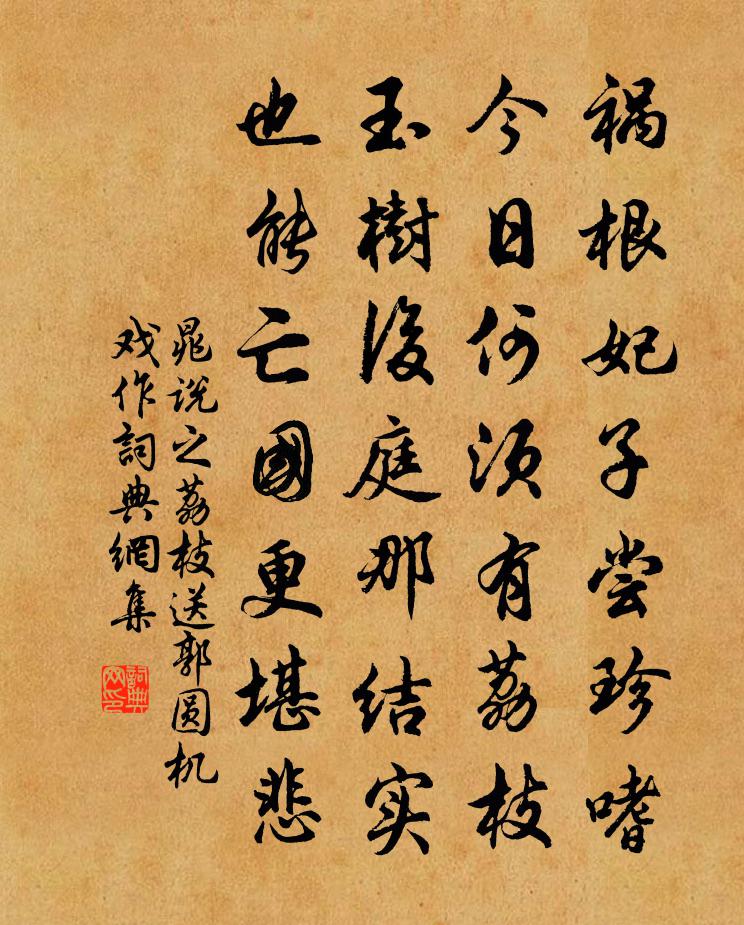 祸根妃子尝珍嗜
今日何须有荔枝
玉樹後庭那结实
也能亡國更堪悲
晁说之荔枝送郭圆机
戏作詞典網集
詞典網印